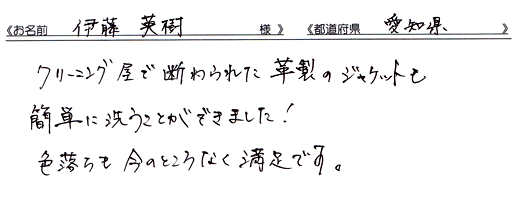 《お名前 伊藤 英樹 様》 《都道府県 愛知県 》
クリーニング屋で断わられた革製のジャケットも
簡単に洗うことができました！
色落ちも今のところなく満足です。